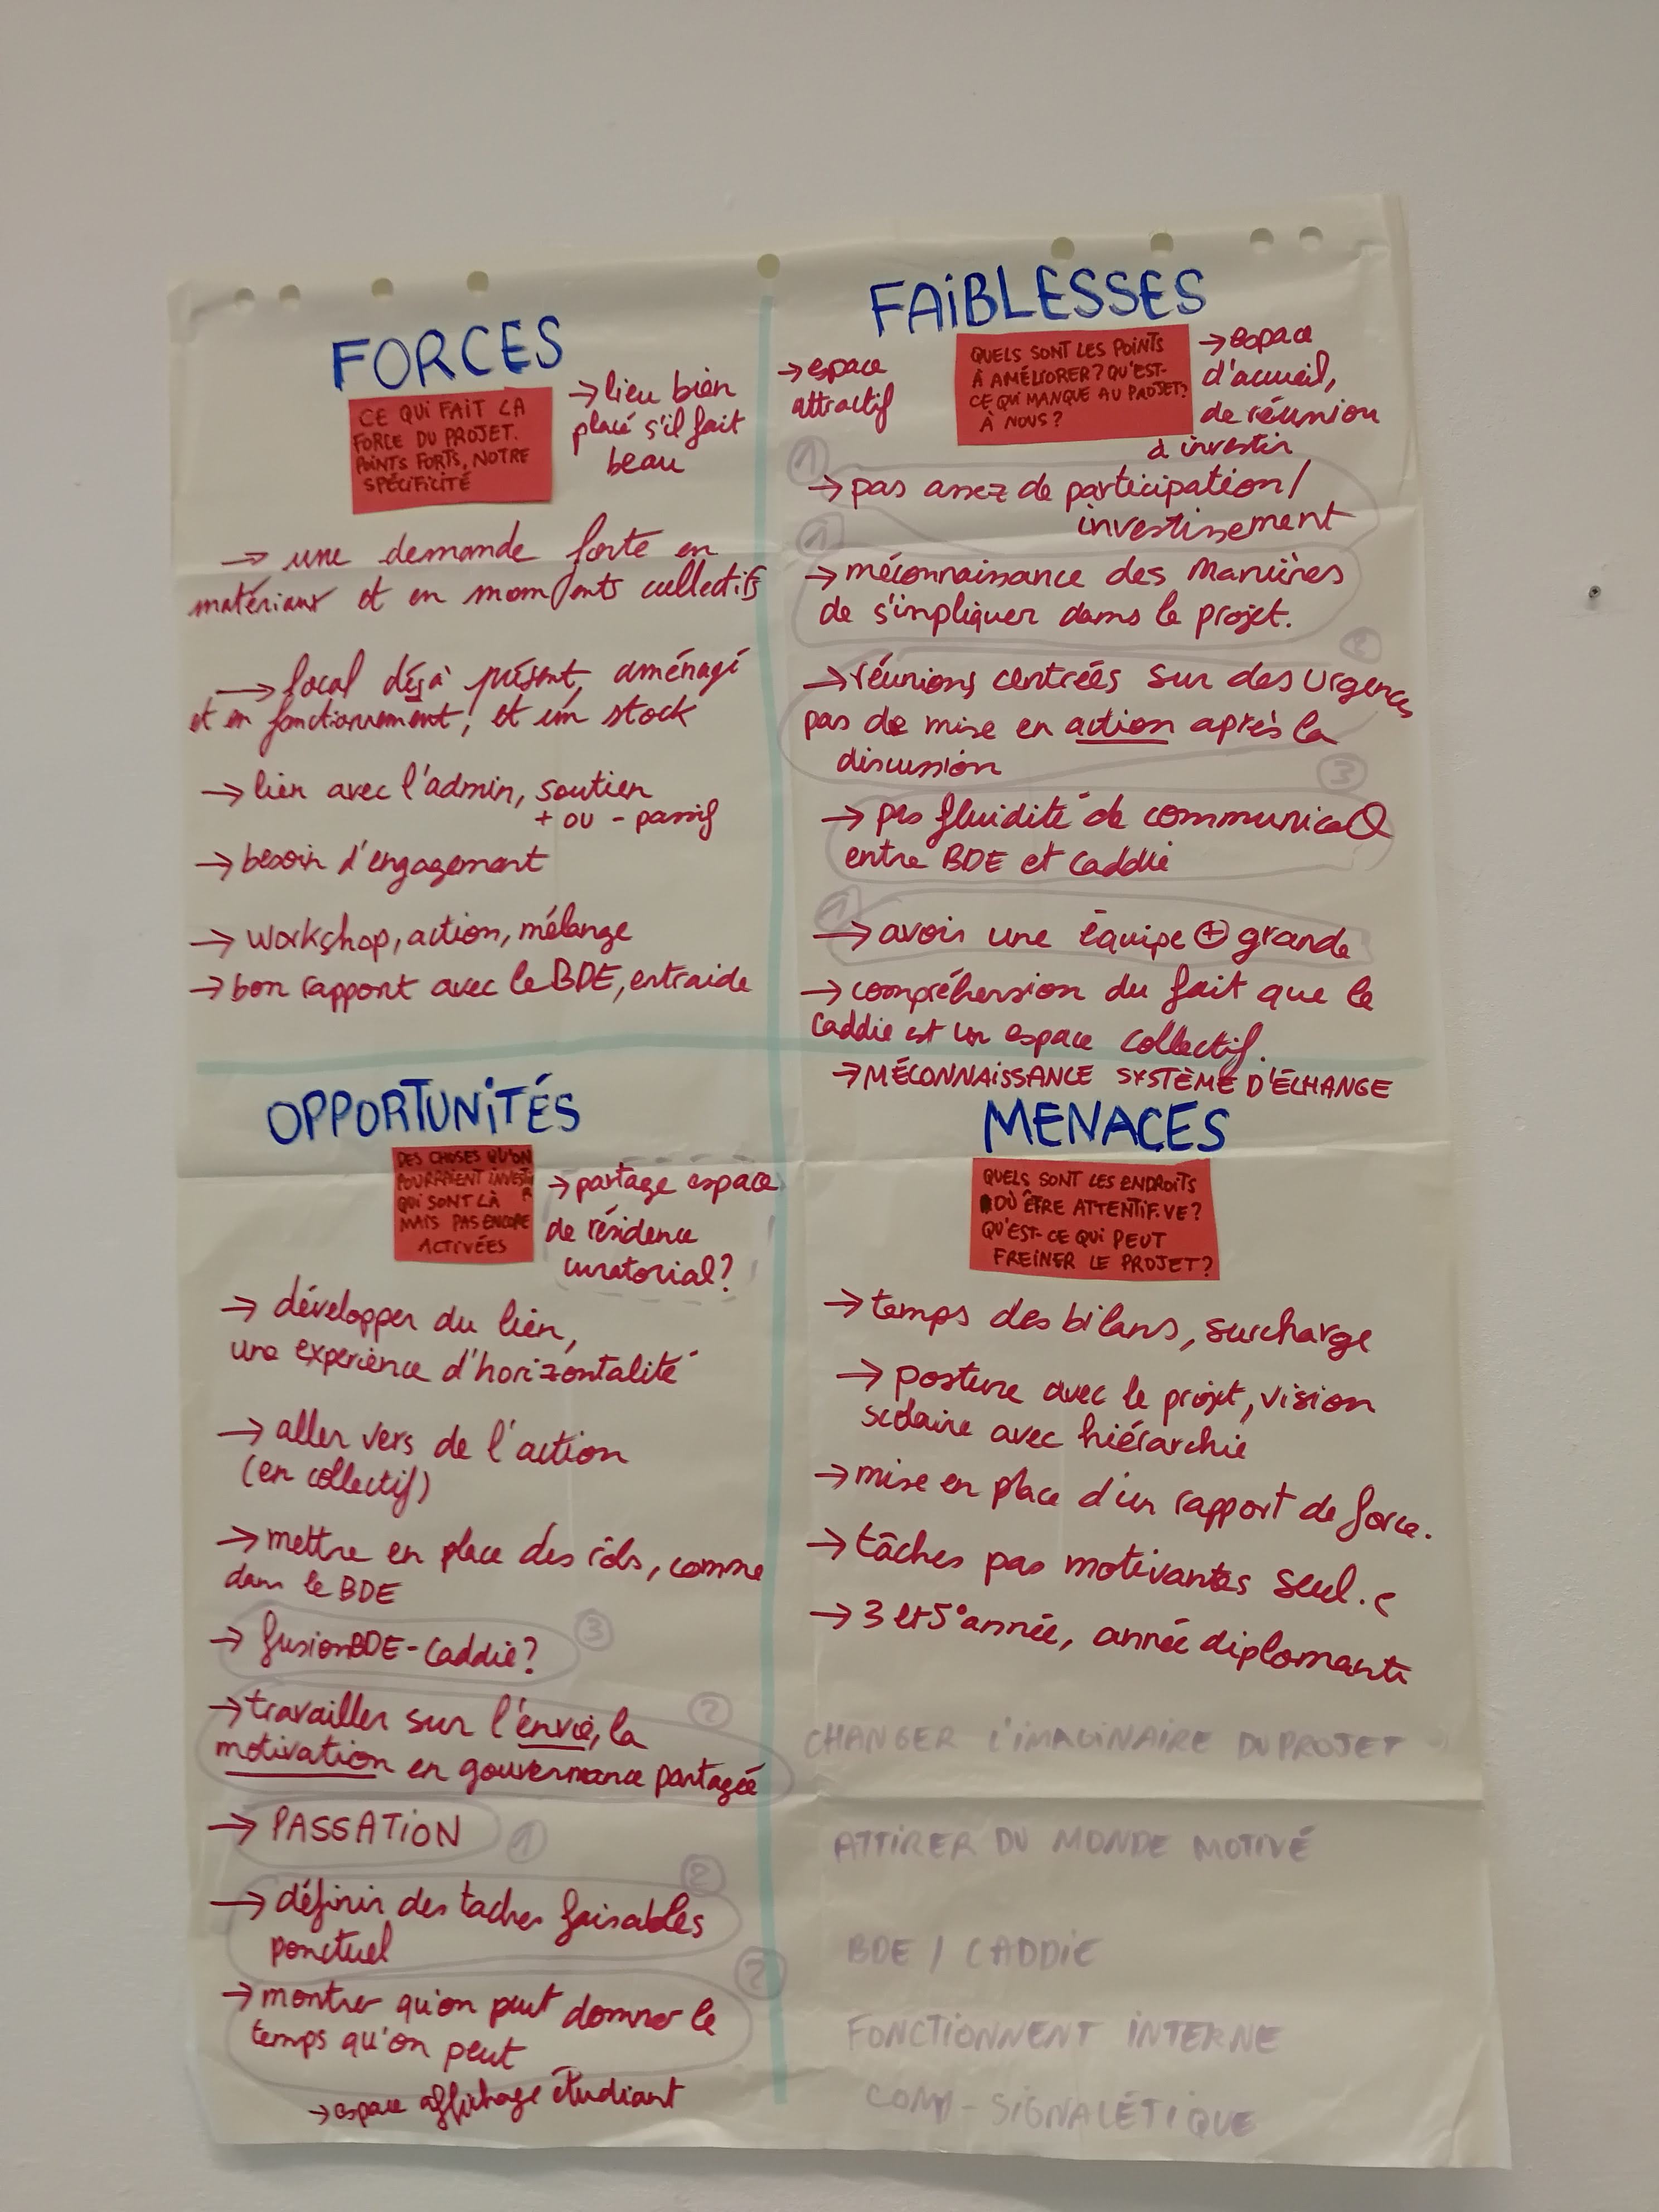 FORCES
CE QUI FAIT LA
FORCE DU PROJET.
POINTS FORTS, NOTRE
SPÉCIFICITÉ
→ lieu bien
placé s'il fait
beau
→ une demande forte en
matériaux et en moments collectifs
→ local déjà présent, aménagé
et en fonctionnement, et un stock
→ lien avec l'admin, soutien
+ ou - passif
→ besoin d'engagement
→ workshop, action, mélange
→ bon rapport avec le BDE, entraide
FAIBLESSES
QUELS SONT LES POINTS
À AMÉLIORER? QU'EST-
CE QUI MANQUE AU PROJET?
À NOUS?
→ espace
attractif
→ espace
d'accueil,
de réunion
à investir
1
→ pas assez de participation/
investissement
1
→ méconnaissance des Manières
de s'impliquer dans le projet.
2
→ réunions centrées sur des Urgences
pas de mise en action après la
discussion
3
→ pas fluidité de communica
entre BDE et Caddie
1
→ avoir une équipe + grande
→ compréhension du fait que le
Caddie est un espace collectif.
→ MÉCONNAISSANCE SYSTÈME D'ÉCHANGE
OPPORTUNITÉS
DES CHOSES QU'ON
POURRAIENT INVESTIR
QUI SONT LÀ
MAIS PAS ENCORE
ACTIVÉES
→ partage espace
de résidence
curatorial?
→ développer du lien,
une expérience d'horizontalité
→ aller vers de l'action
(en collectif)
→ mettre en place des rôls, comme
dans le BDE
→ fusion BDE - Caddie? 3
→ travailler sur l'envie, la 2
motivation en gouvernance partagée
→ PASSATION 1
→ définir des taches faisables 2
ponctuel
→ montrer qu'on peut donner le 2
temps qu'on peut
→ espace affichage étudiant
MENACES
QUELS SONT LES ENDROITS
OÙ ÊTRE ATTENTIF.VE?
QU'EST-CE QUI PEUT
FREINER LE PROJET?
→ temps des bilans, surcharge
→ posture avec le projet, vision
scolaire avec hiérarchie
→ mise en place d'un rapport de force.
→ tâches pas motivantes seul.e
→ 3 et 5° année, année diplomante
CHANGER L'IMAGINAIRE DU PROJET
ATTIRER DU MONDE MOTIVÉ
BDE / CADDIE
FONCTIONNENT INTERNE
COM - SIGNALÉTIQUE